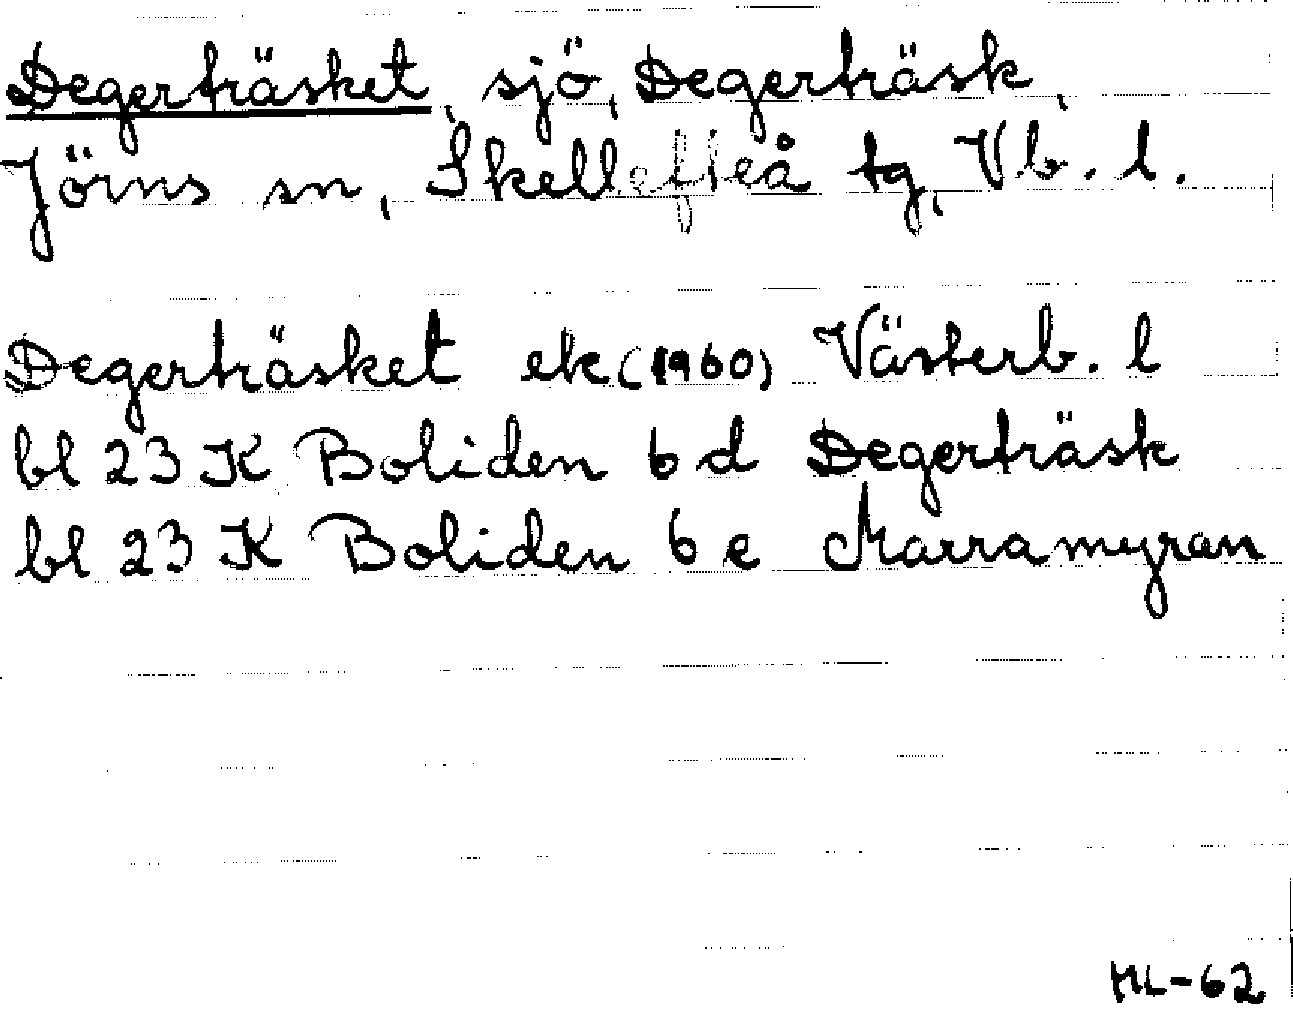 Degerträsket, sjö, Degerträsk,
Jörns sn, Skellefteå tg, Vb. l.
Degerträsket ek (1960) Västerb. l
bl 23 K Boliden 6 d Degerträsk
bl 23 K Boliden 6 e Marramyran
HL-62